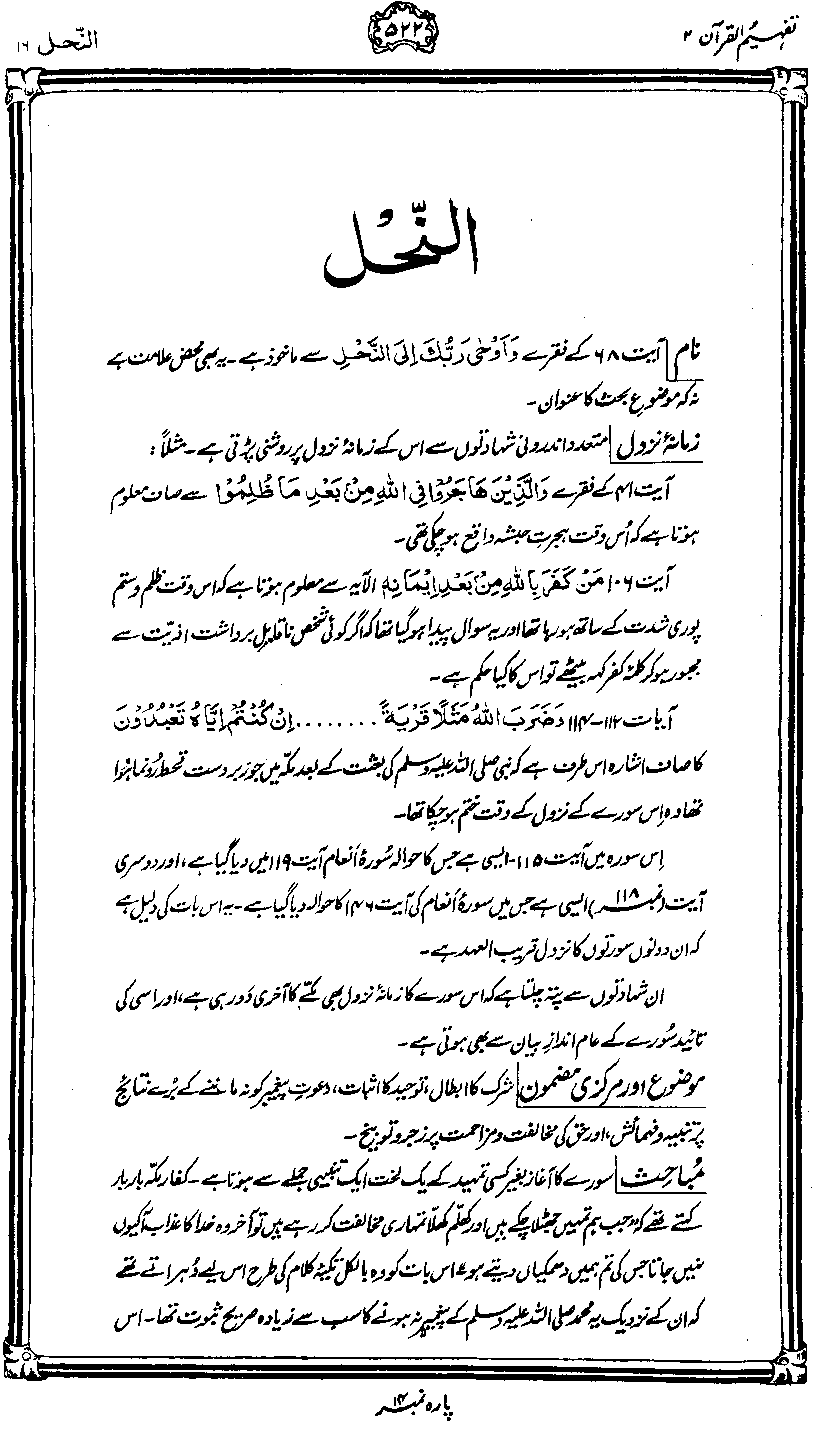 تفہیم القرآن ۲
۵۲۲
النّحل ۱۶
النّحل
نام آیت ۶۸ کے فقرے وَاَوْحٰی رَبُّكَ اِلَی النَّحْلِ سے ماخوذ ہے۔ یہ بھی محض علامت ہے
نہ کہ موضوعِ بحث کا عنوان۔
زمانۂ نزول متعدد اندرونی شہادتوں سے اس کے زمانۂ نزول پر روشنی پڑتی ہے۔ مثلاً:
آیت ۴۱ کے فقرے وَالَّذِیْنَ هَاجَرُوْا فِی اللهِ مِنْ بَعْدِ مَا ظُلِمُوْا سے صاف معلوم
ہوتا ہے کہ اُس وقت ہجرتِ حبشہ واقع ہو چکی تھی۔
آیت ۱۰۶ مَنْ كَفَرَ بِاللهِ مِنْ بَعْدِ اِیْمَانِهٖ الآیہ سے معلوم ہوتا ہے کہ اس وقت ظلم و ستم
پوری شدت کے ساتھ ہو رہا تھا اور یہ سوال پیدا ہو گیا تھا کہ اگر کوئی شخص ناقابلِ برداشت اذیت سے
مجبور ہو کر کلمۂ کفر کہہ بیٹھے تو اس کا کیا حکم ہے۔
آیات ۱۱۲-۱۱۴ وَضَرَبَ اللهُ مَثَلًا قَرْیَةً ........ اِنْ كُنْتُمْ اِیَّاهُ تَعْبُدُوْنَ
کا صاف اشارہ اس طرف ہے کہ نبی صلی اللہ علیہ وسلم کی بعثت کے بعد مکہ میں جو زبردست قحط رونما ہوا
تھا وہ اِس سورے کے نزول کے وقت ختم ہو چکا تھا۔
اِس سورہ میں آیت ۱۱۵ ایسی ہے جس کا حوالہ سُورۂ اَنعام آیت ۱۱۹ میں دیا گیا ہے، اور دوسری
آیت (نمبر ۱۱۸) ایسی ہے جس میں سورۂ اَنعام کی آیت ۱۴۶ کا حوالہ دیا گیا ہے۔ یہ اس بات کی دلیل ہے
کہ ان دونوں سورتوں کا نزول قریب العہد ہے۔
ان شہادتوں سے پتہ چلتا ہے کہ اس سورے کا زمانۂ نزول بھی مکّے کا آخری دَور ہی ہے، اور اسی کی
تائید سُورے کے عام اندازِ بیان سے بھی ہوتی ہے۔
موضوع اور مرکزی مضمون شرک کا ابطال، توحید کا اثبات، دعوتِ پیغمبر کو نہ ماننے کے بُرے نتائج
پر تنبیہ و فہمائش، اور حق کی مخالفت و مزاحمت پر زجر و توبیخ۔
مباحث سورے کا آغاز بغیر کسی تمہید کے یک لخت ایک تنبیہی جملے سے ہوتا ہے۔ کفارِ مکہ بار بار
کہتے تھے کہ "جب ہم تمہیں جھٹلا چکے ہیں اور کھلم کھلا تمہاری مخالفت کر رہے ہیں تو آخر وہ خدا کا عذاب آ کیوں
نہیں جاتا جس کی تم ہمیں دھمکیاں دیتے ہو" اس بات کو وہ بالکل تکیۂ کلام کی طرح اس لیے دُہراتے تھے
کہ ان کے نزدیک یہ محمد صلی اللہ علیہ وسلم کے پیغمبر نہ ہونے کا سب سے زیادہ صریح ثبوت تھا۔ اس
پارہ نمبر ۱۴